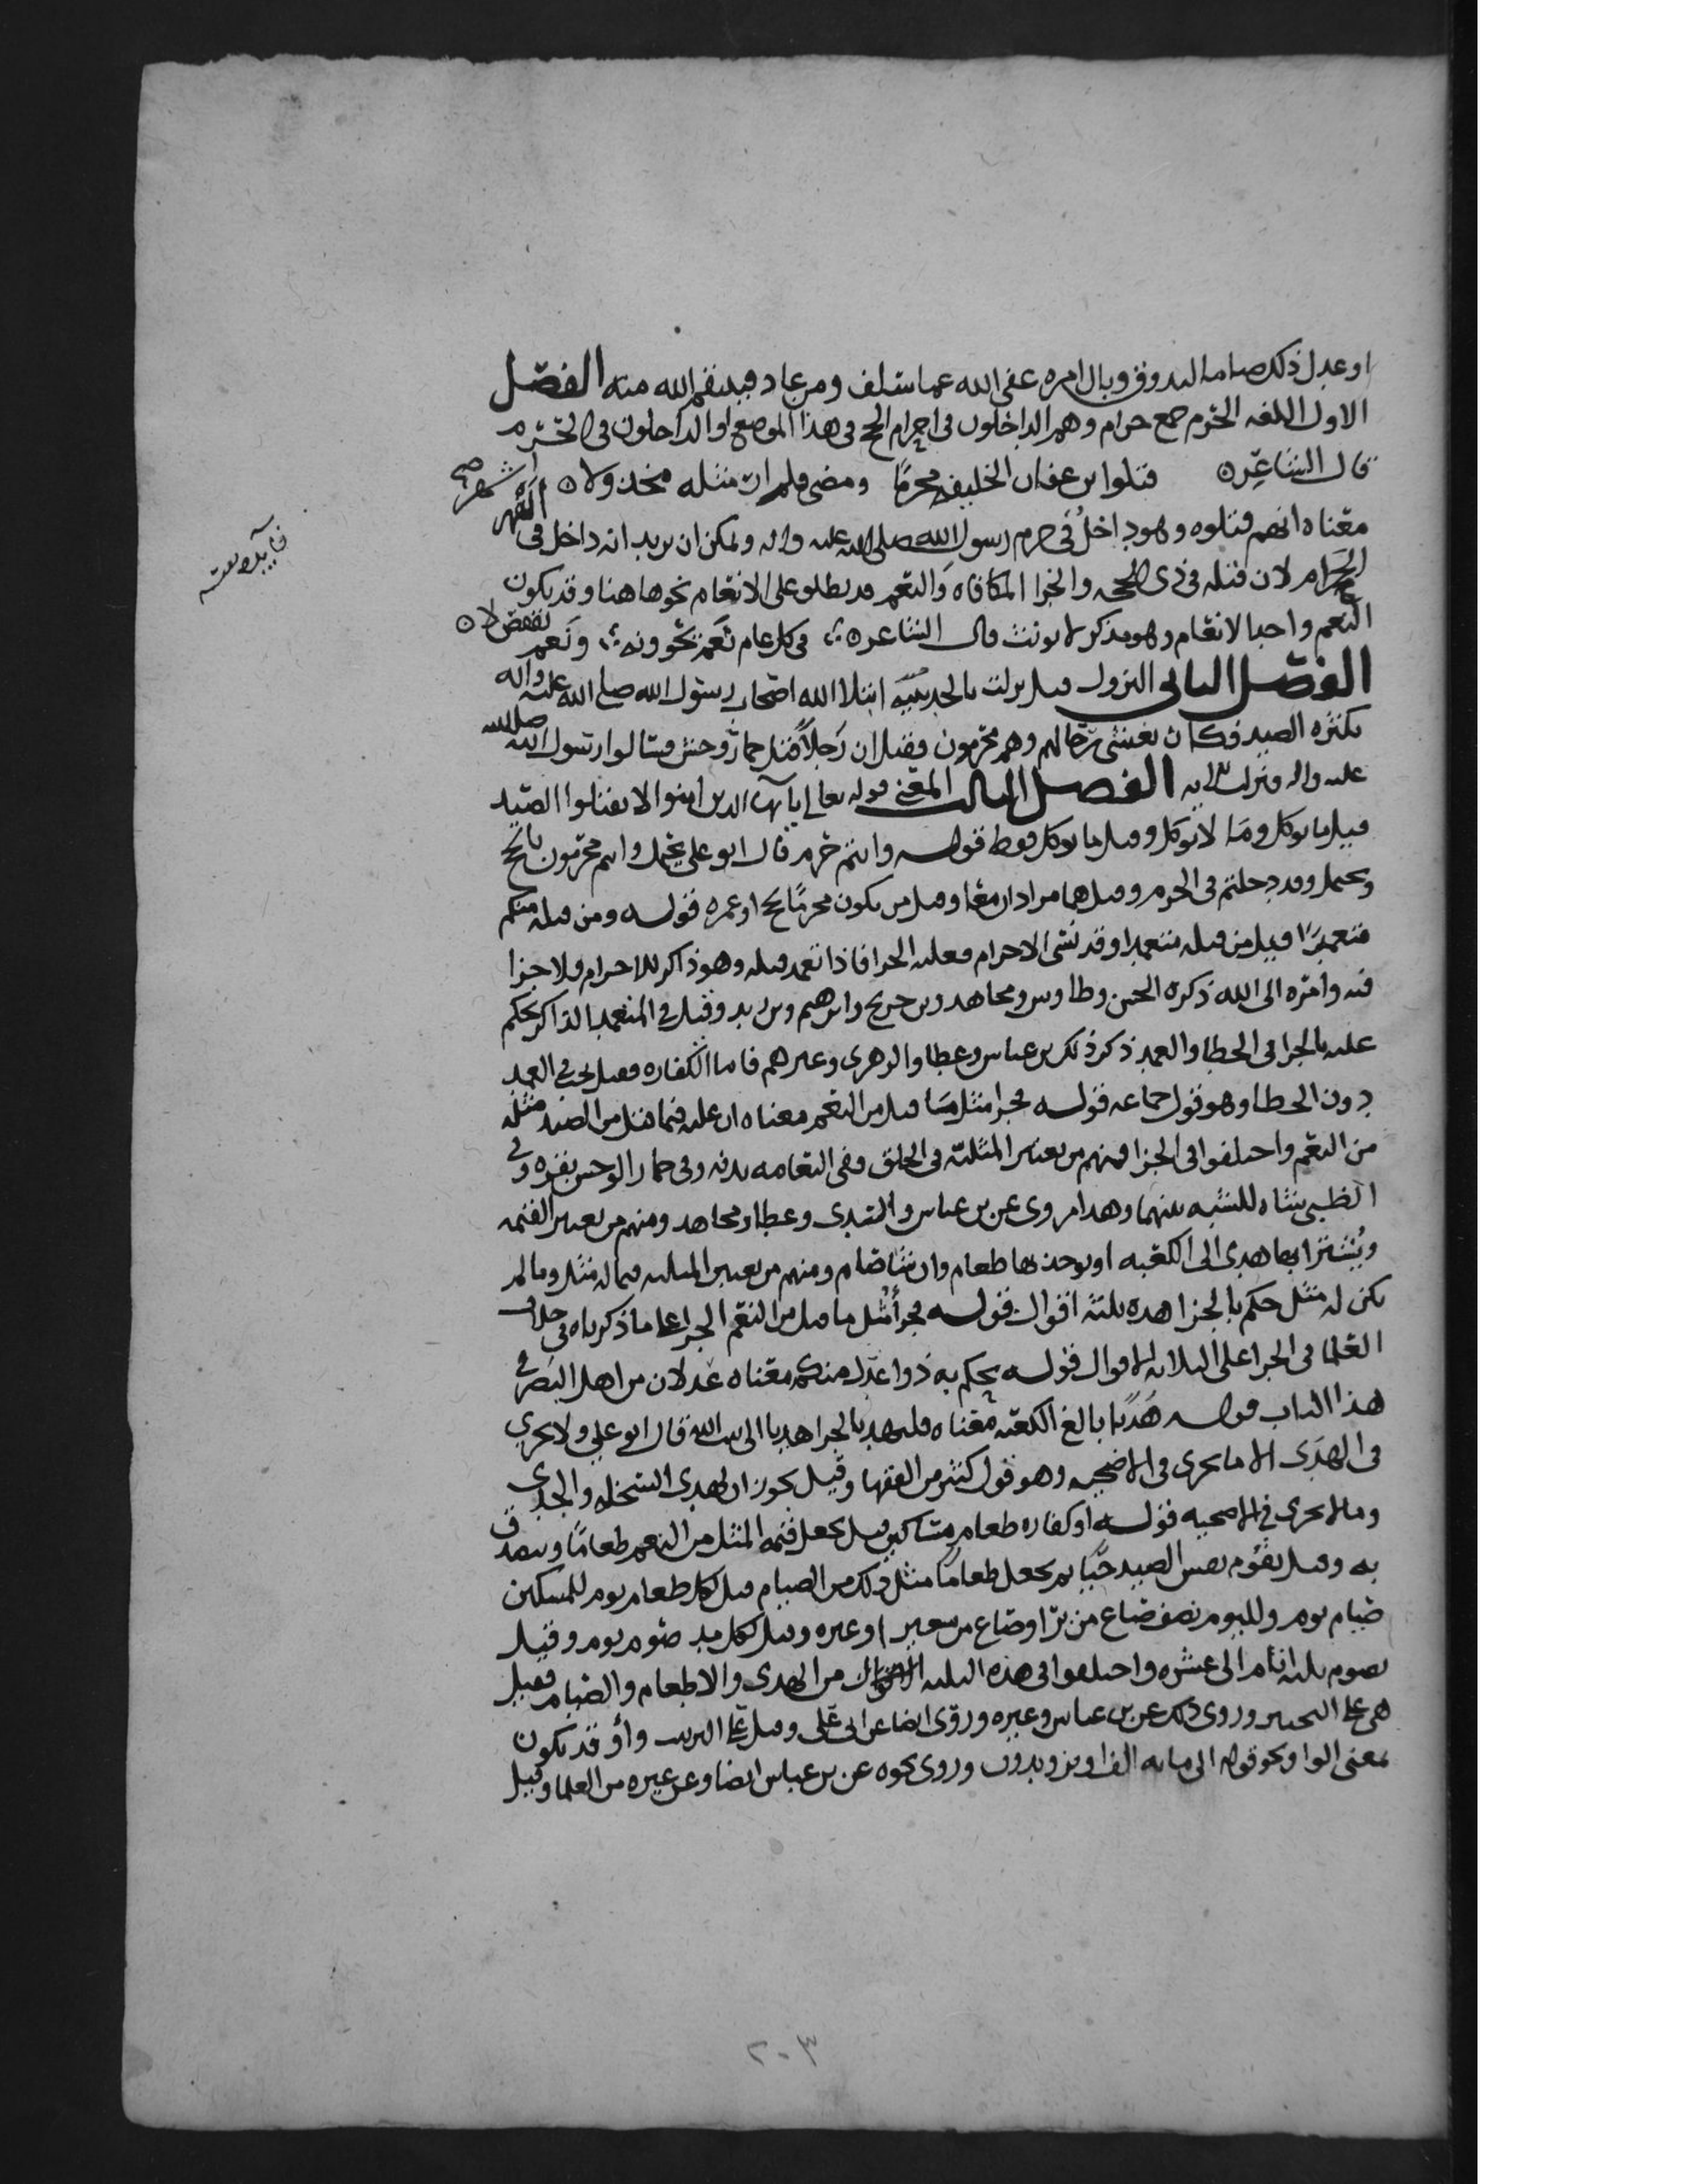 او عدل ذلك صياما ليذوق وبال امره عفى الله عما سلف ومن عاد فينتقم الله منه الفصل
الاول اللغه الحرم جمع حرام وهم الداخلون في احرام الحج في هذا الموضع او الداخلون في الحرم
قال الشاعر ن قتلوا بن عفان الخليفه محرمًا ومضى فلم ار مثله مخذولا ن
معناه انهم قتلوه وهو داخل في حرم رسول الله صلى الله عليه واله ويمكن ان يريد انه داخل في الشهر
الحرام لان قتله في ذي الحجه والجزا المكافاه والنعم قد يطلق على الانعام نحو هاهنا وقد يكون
النعم واحد الانعام وهو مذكر لا يونث قال الشاعر ن في كل عام نعم تحوونه ونعم
الفصل الثاني النزول قيل نزلت بالحديبيه ابتلا الله اصحاب رسول الله صلى الله عليه واله
بكثره الصيد فكان يغشى رحالهم وهم محرمون وقيل ان رجلاً قتل حمار وحش فسالوا رسول الله صلى الله
عليه واله فنزلت الايه الفصل الثالث المعنى قوله تعالى يا ايها الذين امنوا لا تقتلوا الصيد
قيل ما يوكل وما لا يوكل وقيل ما يوكل فقط قوله وانتم حرم قال ابو علي يحتمل وانتم محرمون بالحج
ويحتمل وقد دخلتم في الحرم وقيل هما مرادان معًا وقيل من يكون محرمًا بحج او عمره قوله ومن قتله منكم
متعمدًا قيل من قتله متعمدا وقد نسى الاحرام فعليه الجزا فاذا تعمد قتله وهو ذاكر للاحرام فلا جزا
فيه وامره الى الله ذكره الحسن وطاوس ومجاهد وبن جريج وابرهيم وبن زيد وقيل في المتعمد الذاكر يحكم
عليه بالجزا في الخطا والعمد ذكر ذلك بن عباس وعطا والزهري وغيرهم فاما الكفاره فقيل يجب في العمد
دون الخطا وهو قول جماعه قوله فجزا مثل ما قتل من النعم معناه ان عليه فيما قتل من الصيد مثله
من النعم واختلفوا في الجزا فمنهم من يعتبر المثليه في الخلق ففي النعامه بدنه وفي حمار الوحش بقره وفي
الظبي شاه للشبه بينهما وهذا مروي عن بن عباس والسدي وعطا ومجاهد ومنهم من يعتبر القيمه
ويُشترا بها هدي الى الكعبه او يوخذ بها طعام وان شا صام ومنهم من يعتبر المثليه فيما له مثل وما لم
يكن له مثل حكم بالجزا هذه ثلثه اقوال قوله فجزأ مثل ما قتل من النعم الجزا على ما ذكرناه في خلاف
العلما في الجزا على الثلاثه الاقوال قوله يحكم به ذوا عدل منكم معناه عدلان من اهل البصر في
هذا الباب قوله هَديًا بالغ الكعبه معناه فليهد بالجزا هديا الى بيت الله قال ابو علي ولا يجزي
في الهدي الا ما يجزي في الاضحيه وهو قول كثير من الفقها وقيل يجوز ان يهدي السخله والجدي
وما لا يجزي في الاضحيه قوله او كفاره طعام مساكين قيل يجعل قيمه المثل من النعم طعامًا ويتصدق
به وقيل يقوم نفس الصيد حيًا ثم يجعل طعامًا مثل ذلك من الصيام قيل لكل طعام يوم للمسكين
صيام يوم ولليوم نصف صاع من بر او صاع من شعير او غيره وقيل لكل مد صوم يوم وقيل
يصوم ثلثه ايام الى عشره واختلفوا في هذه الثلثه من الهدي والاطعام والصيام فقيل
هي على التخيير وروي ذلك عن بن عباس وغيره وروي ايضا عن ابي علي وقيل على الترتيب وأو قد يكون
بمعنى الواو نحو قوله الى مايه الف او يزيدون وروي نحوه عن بن عباس ايضا وعن غيره من العلما وقيل
٢٠٣